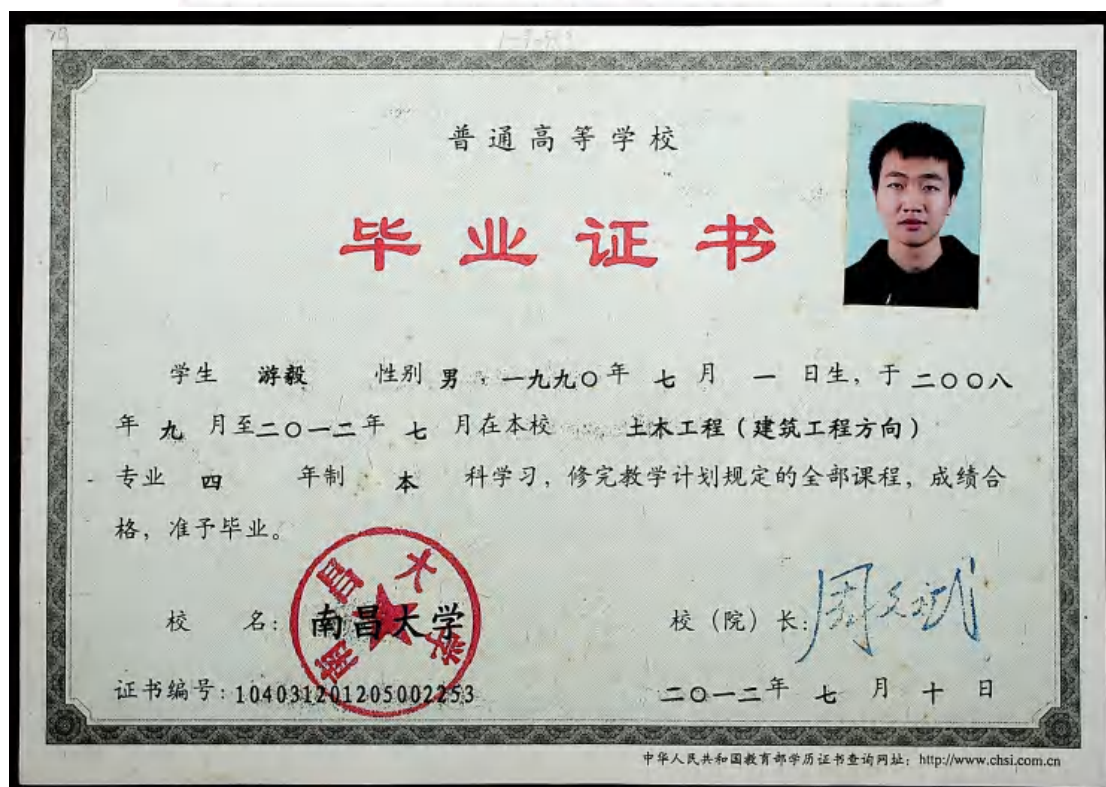 普通高等学校
毕业证书
学生 游毅 性别 男，一九九〇年 七 月 一 日生，于二〇〇八
年 九 月至二〇一二年 七 月在本校 土木工程（建筑工程方向）
专业 四 年制 本 科学习，修完教学计划规定的全部课程，成绩合
格，准予毕业。
校 名：南昌大学
南昌大学
校（院）长：周文斌
证书编号：104031201205002253
二〇一二年 七 月 十 日
中华人民共和国教育部学历证书查询网址：http://www.chsi.com.cn